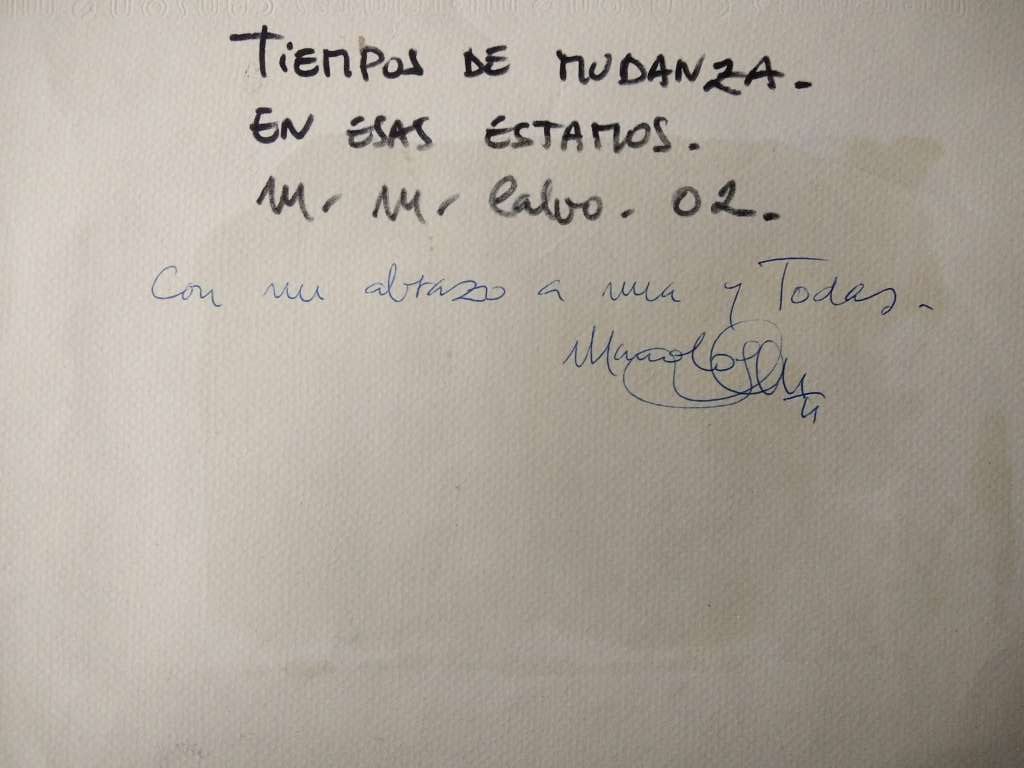 TIEMPOS DE MUDANZA.
EN ESAS ESTAMOS.
M. M. Calvo. 02.
Con un abrazo a una y Todas.